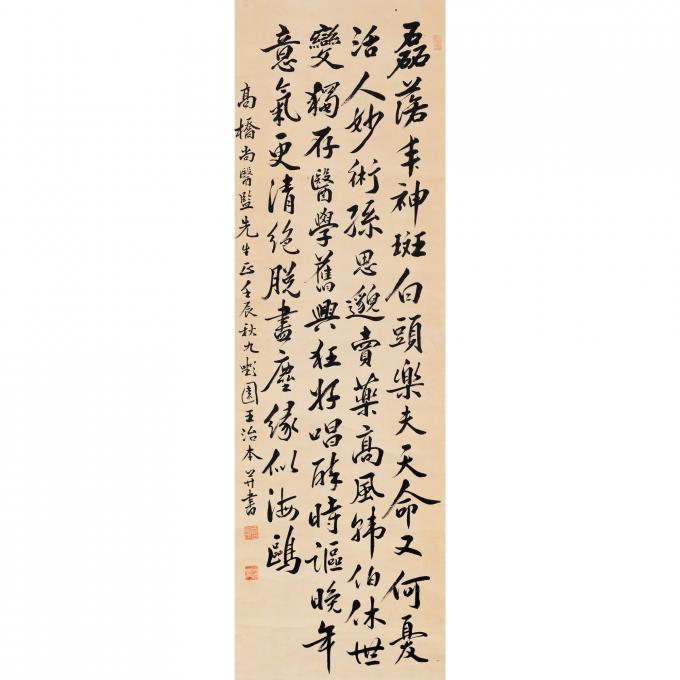 磊落丰神斑白頭樂夫天命又何憂
活人妙術孫思邈賣藥高風韓伯休世
變獨存醫學舊興狂好唱酔時謳晚年
意氣更清絶脫盡塵緣似海鷗
高橋尚醫監先生正壬辰秋九園王治本并書